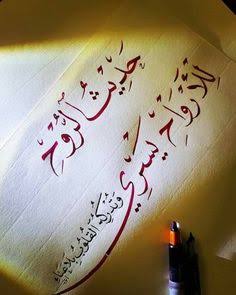 حَدِيثُ الرُّوحِ
لِلْأَرْوَاحِ يَسْرِي
وَتُدْرِكُهُ القُلُوبُ بِلَا عَنَاءِ